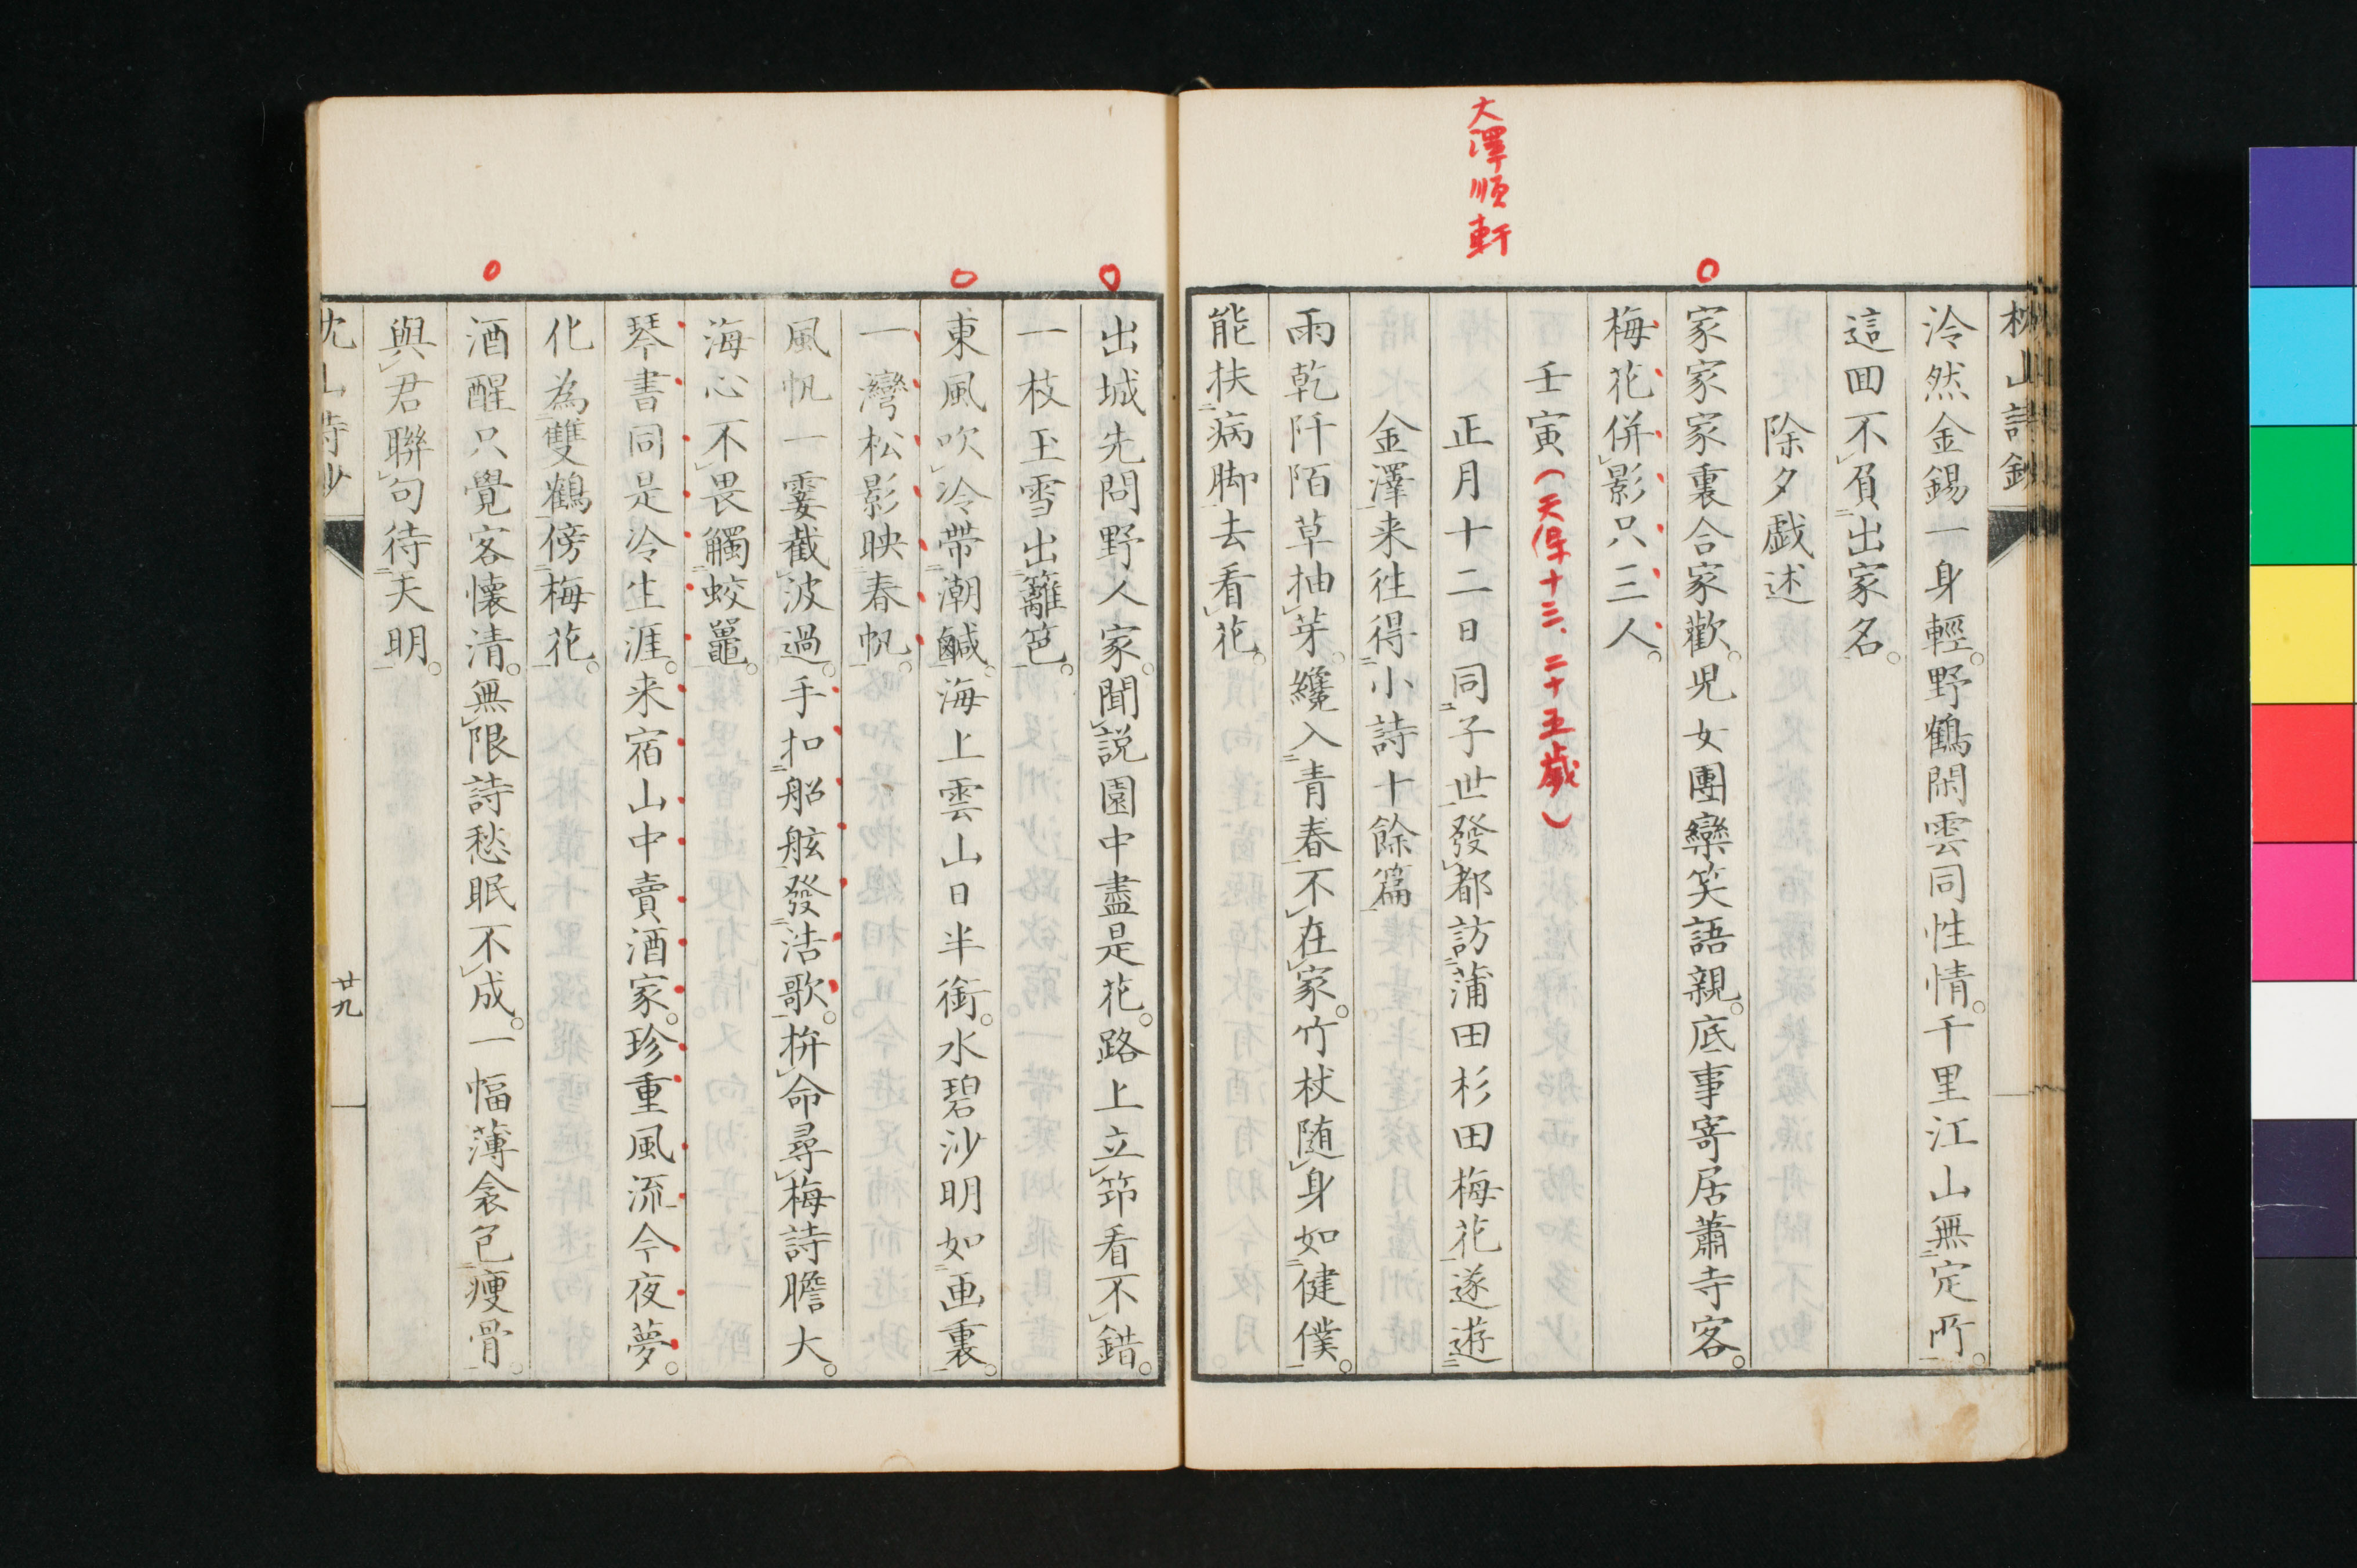 大澤順軒
枕山詩鈔
泠然金錫一身輕。野鶴閑雲同性情。千里江山無定所。
這回不負出家名。
除夕戯述
家家家裏合家歡。児女團欒笑語親。底事寄居蕭寺客。
梅花併影只三人。
壬寅(天保十三、二十五歳)
正月十二日同子世發都訪蒲田杉田梅花遂遊
金澤来往得小詩十餘篇
雨乾阡陌草抽芽。纔入青春不在家。竹杖随身如健僕。
能扶病脚去看花。
出城先問野人家。聞説園中盡是花。路上立笻看不錯。
一枝玉雪出籬笆。
東風吹冷帶潮鹹。海上雲山日半銜。水碧沙明如画裏。
一灣松影映春帆。
風帆一霎截波過。手扣船舷發浩歌。拚命尋梅詩膽大。
海心不畏觸蛟鼉。
琴書同是冷生涯。来宿山中賣酒家。珍重風流今夜夢。
化為雙鶴傍梅花。
酒醒只覺客懐清。無限詩愁眠不成。一幅薄衾包痩骨。
與君聯句待天明。
枕山詩鈔
廿九